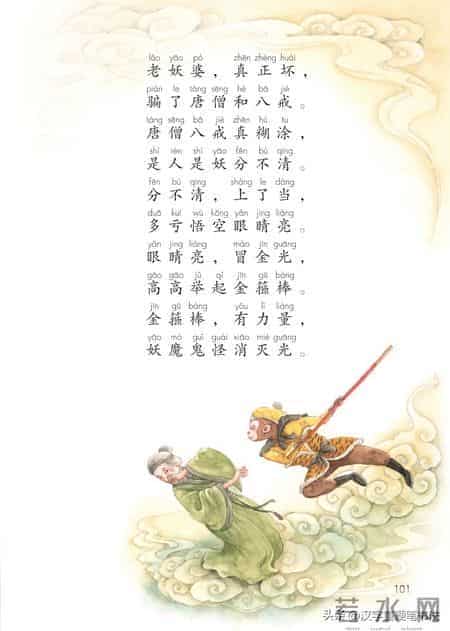 lǎo yāo pó zhēn zhèng huài
老妖婆，真正坏，
piàn le táng sēng hé bā jiè
骗了唐僧和八戒。
táng sēng bā jiè zhēn hú tu
唐僧八戒真糊涂，
shì rén shì yāo fēn bù qīng
是人是妖分不清。
fēn bù qīng shàng le dàng
分不清，上了当，
duō kuī wù kōng yǎn jīng liàng
多亏悟空眼睛亮。
yǎn jīng liàng mào jīn guāng
眼睛亮，冒金光，
gāo gāo jǔ qǐ jīn gū bàng
高高举起金箍棒。
jīn gū bàng yǒu lì liàng
金箍棒，有力量，
yāo mó guǐ guài xiāo miè guāng
妖魔鬼怪消灭光。
101
头条
若水网